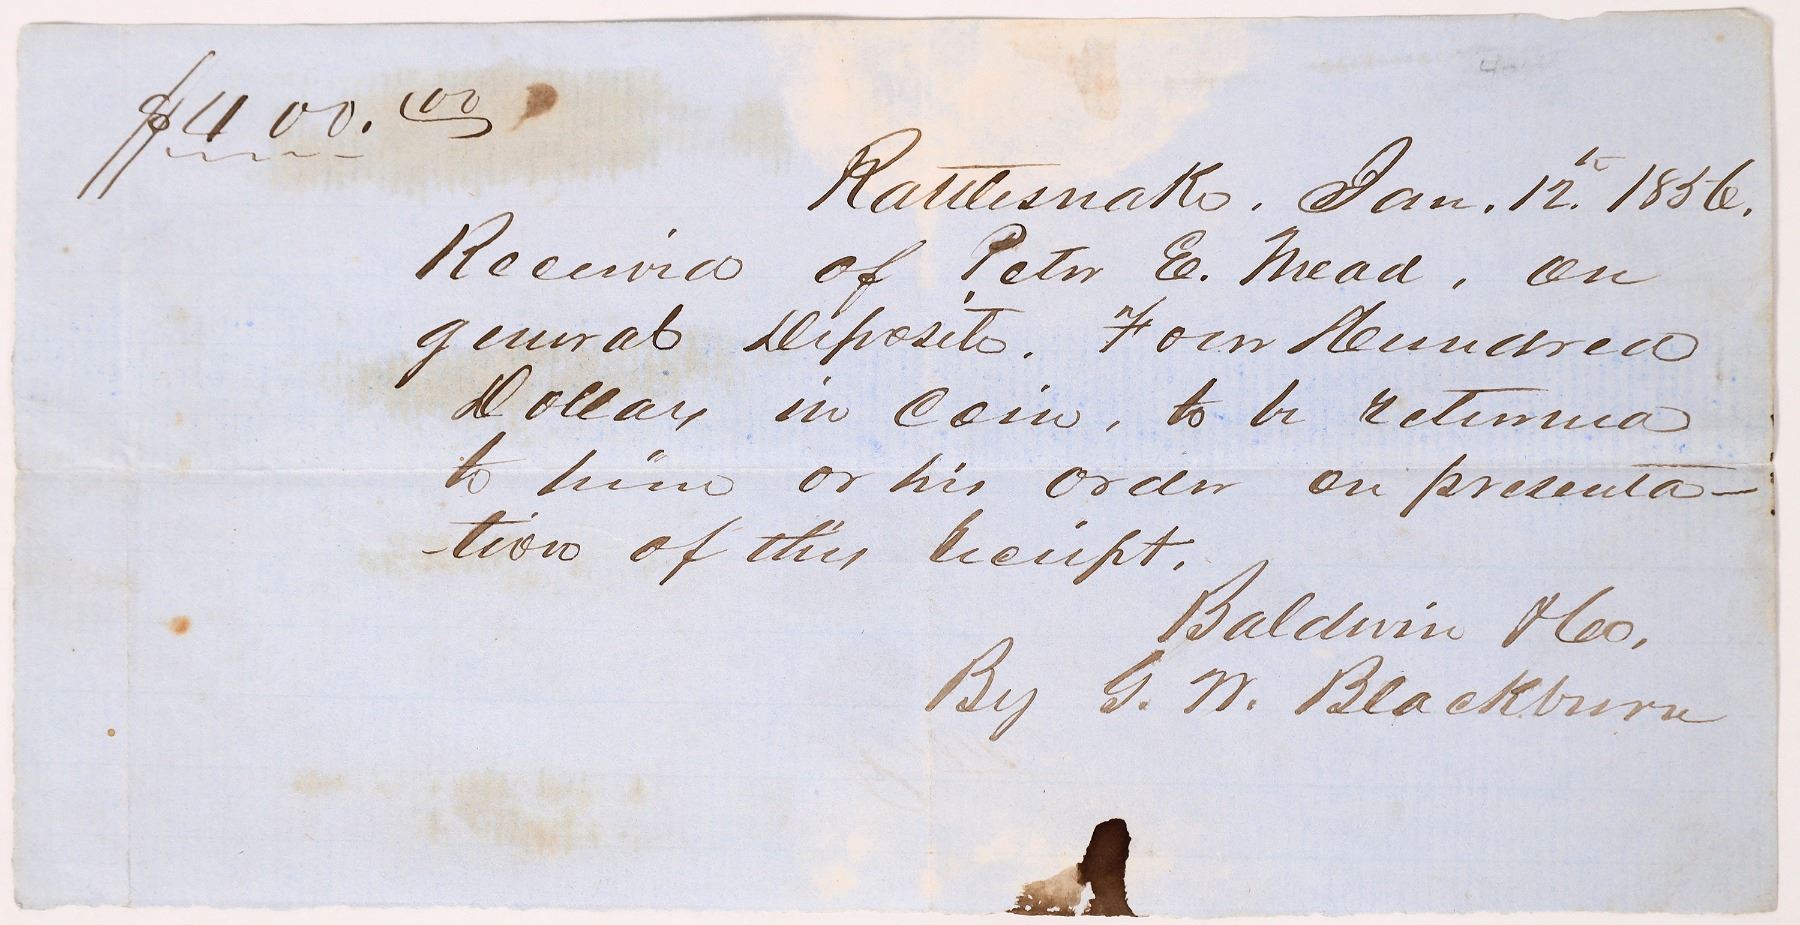 $400.00
Rattlesnake. Jan. 12th 1856.
Received of Peter E. Mead, on
general Deposite. Four Hundred
Dollars in Coin, to be returned
to him or his order on presenta-
-tion of this receipt.
Baldwin & Co.
By G. W. Blackburn